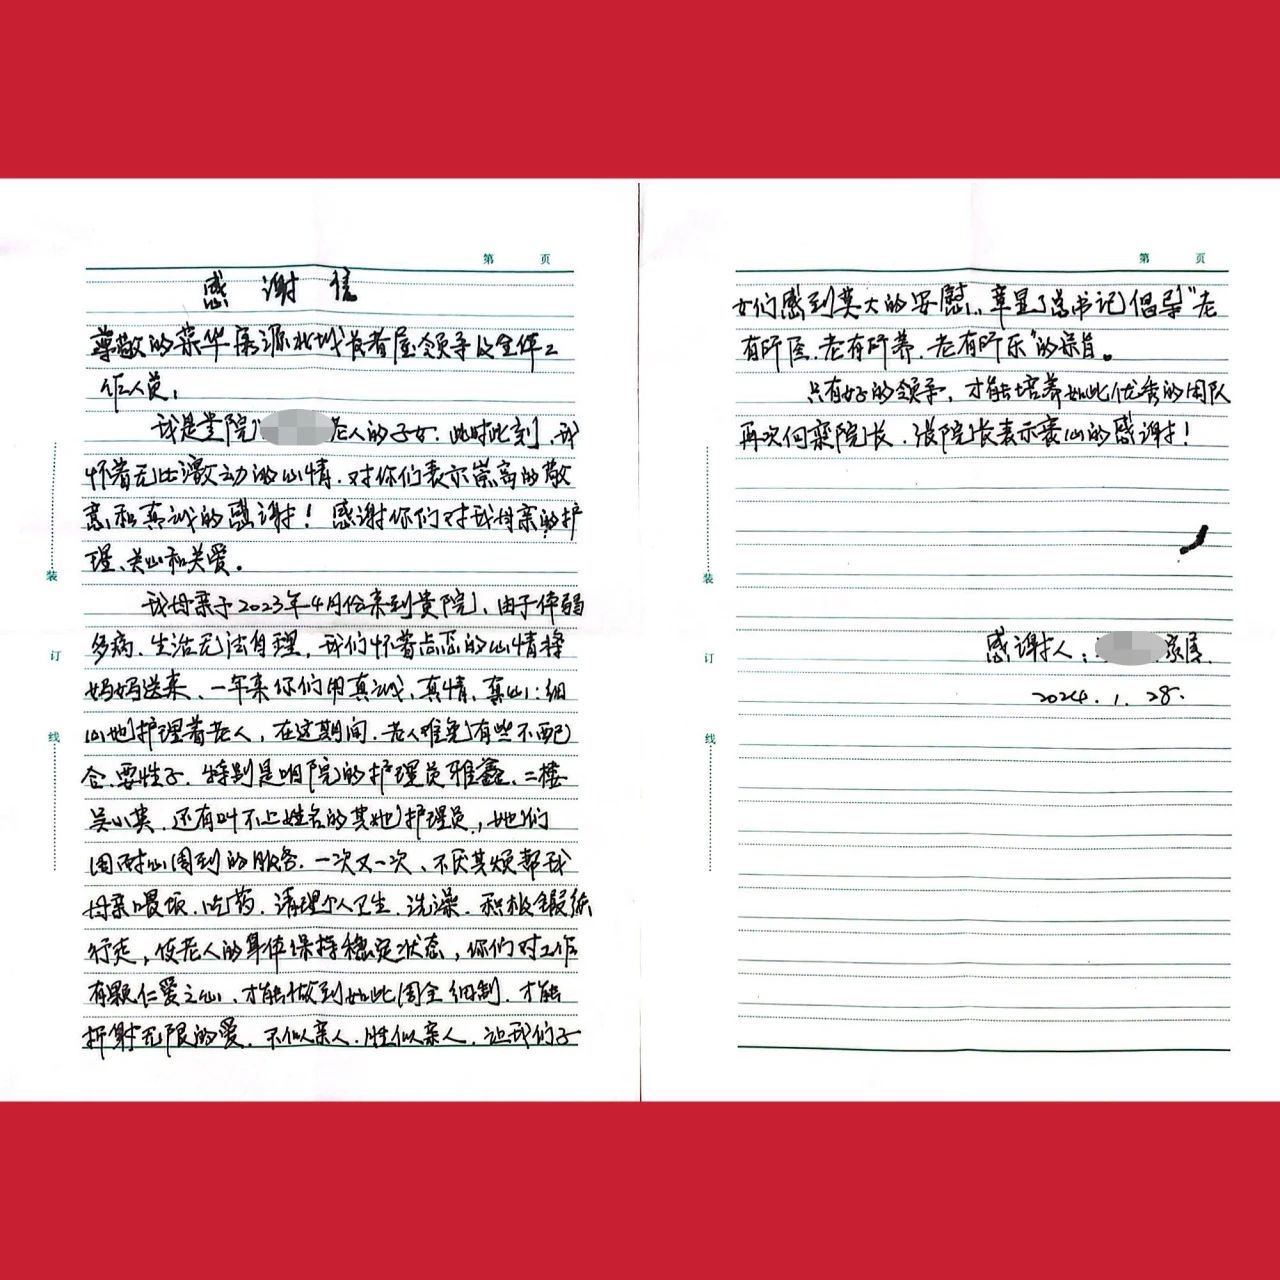 第 页
感谢信
尊敬的荣华康源北城长者屋领导及全体工
作人员:
我是贵院 老人的子女.此时此刻,我
怀着无比激动的心情.对你们表示崇高的敬
意和真诚的感谢! 感谢你们对我母亲的护
理、关心和关爱。
我母亲于2023年4月份来到贵院,由于体弱
多病、生活无法自理,我们怀着忐忑的心情将
妈妈送来、一年来你们用真诚,真情,真心:细
心地护理着老人,在这期间.老人难免有些不配
合.耍性子.特别是咱院的护理员雅鑫、二楼
吴小英.还有叫不上姓名的其她护理员,她们
周到的服务.一次又一次、不厌其烦帮我
母亲喂饭.吃药.清理个人卫生.洗澡.积极锻练
行走,使老人的身体保持稳定状态,你们对工作
有颗仁爱之心、才能做到如此周全细制.才能
折射无限的爱.不似亲人.胜似亲人.让我们子
装
订
线
第 页
女们感到莫大的安慰..章显了总书记倡导"老
有所医.老有所养.老有所乐"的宗旨。
只有好的领导,才能培养如此优秀的团队
再次向栾院长.张院长表示衷心的感谢!
感谢人: 家属.
2024.1.28.
装
订
线